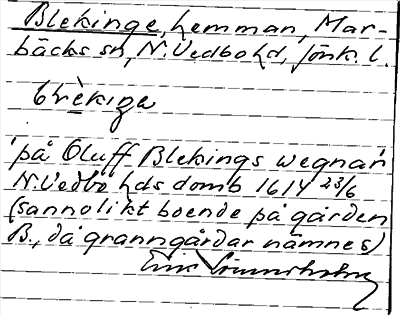 Blekinge, hemman, Mar-
bäcks sn, N. Vedbo hd, Jönk. l.
brèkiga
"på Oluff Blekings wegnar"
N. Vedbo hds domb 1614 23/6
(sannolikt boende på gården
B., då granngårdar nämnes)